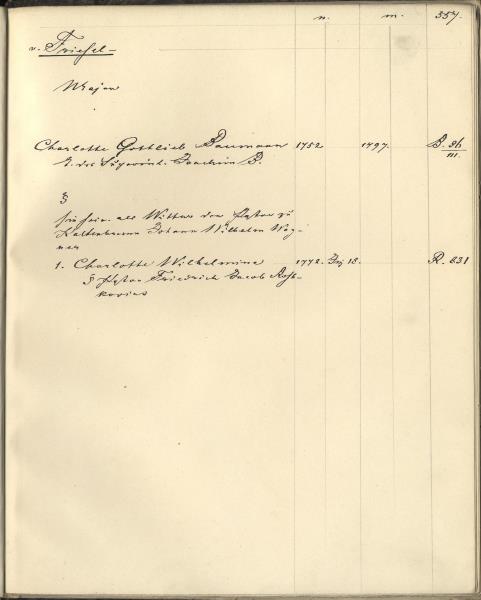 n. m. 357.
v. Friesel
Major
Charlotte Gottlieb Baumann 1752 1797. B. 86/III.
T. des Joachim B.
§
als Wittwe den Pastor zu
Kaltenbrunn Johann Wilhelm Wag-
ner
1. Charlotte Wilhelmine 1772. 18. R. 831
§ Pastor Friedrich Jacob Rosz-
kovius